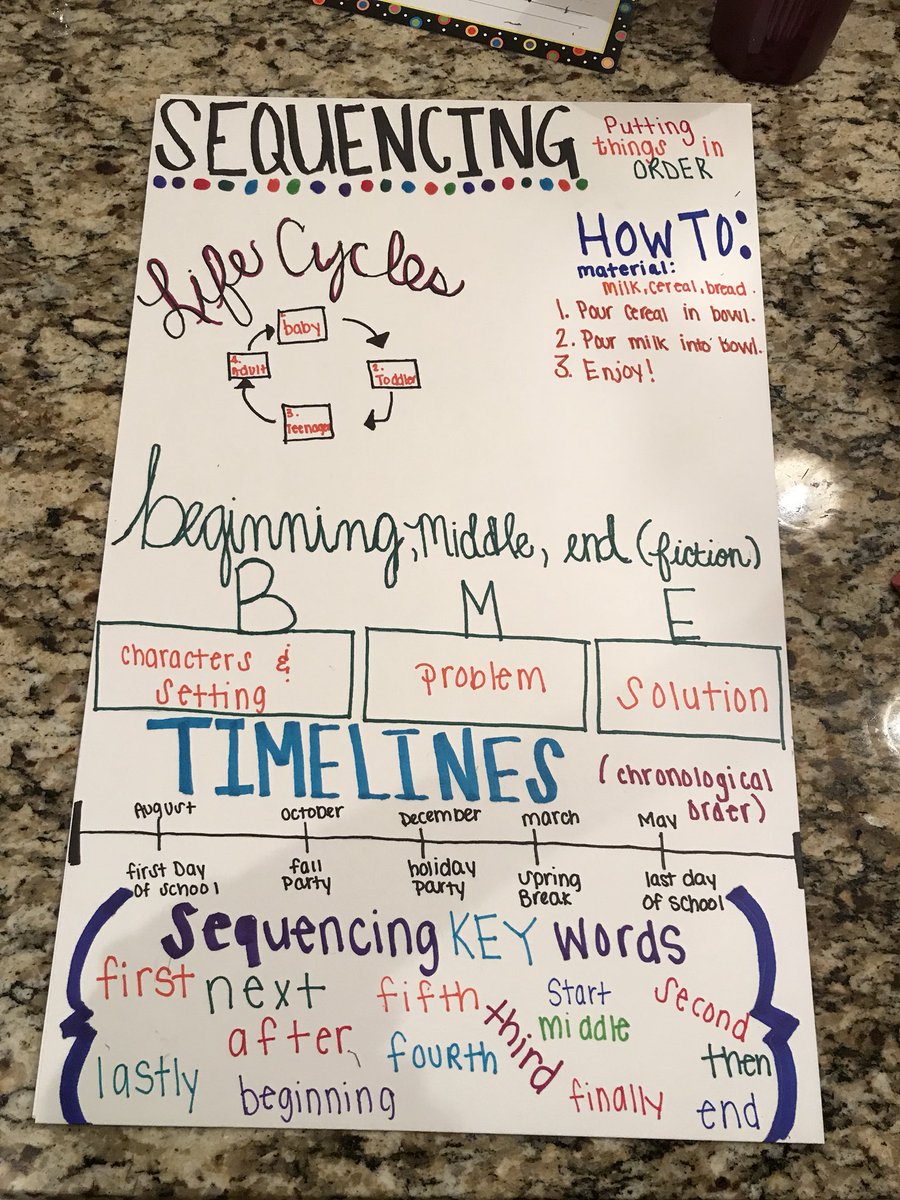 SEQUENCING
Putting
things in
ORDER
Life Cycles
1.
baby
2.
Toddler
3.
Teenager
4.
Adult
HOW TO:
material:
milk, cereal, bread.
1. Pour cereal in bowl.
2. Pour milk into bowl.
3. Enjoy!
beginning, Middle, end (fiction)
B M E
characters &
setting
problem
Solution
TIMELINES
(chronological
order)
August October December march May
first Day
of school
fall
Party
holiday
party
spring
Break
last day
of school
Sequencing KEY Words
first next fifth third Start second
after fourth middle then
lastly beginning finally end